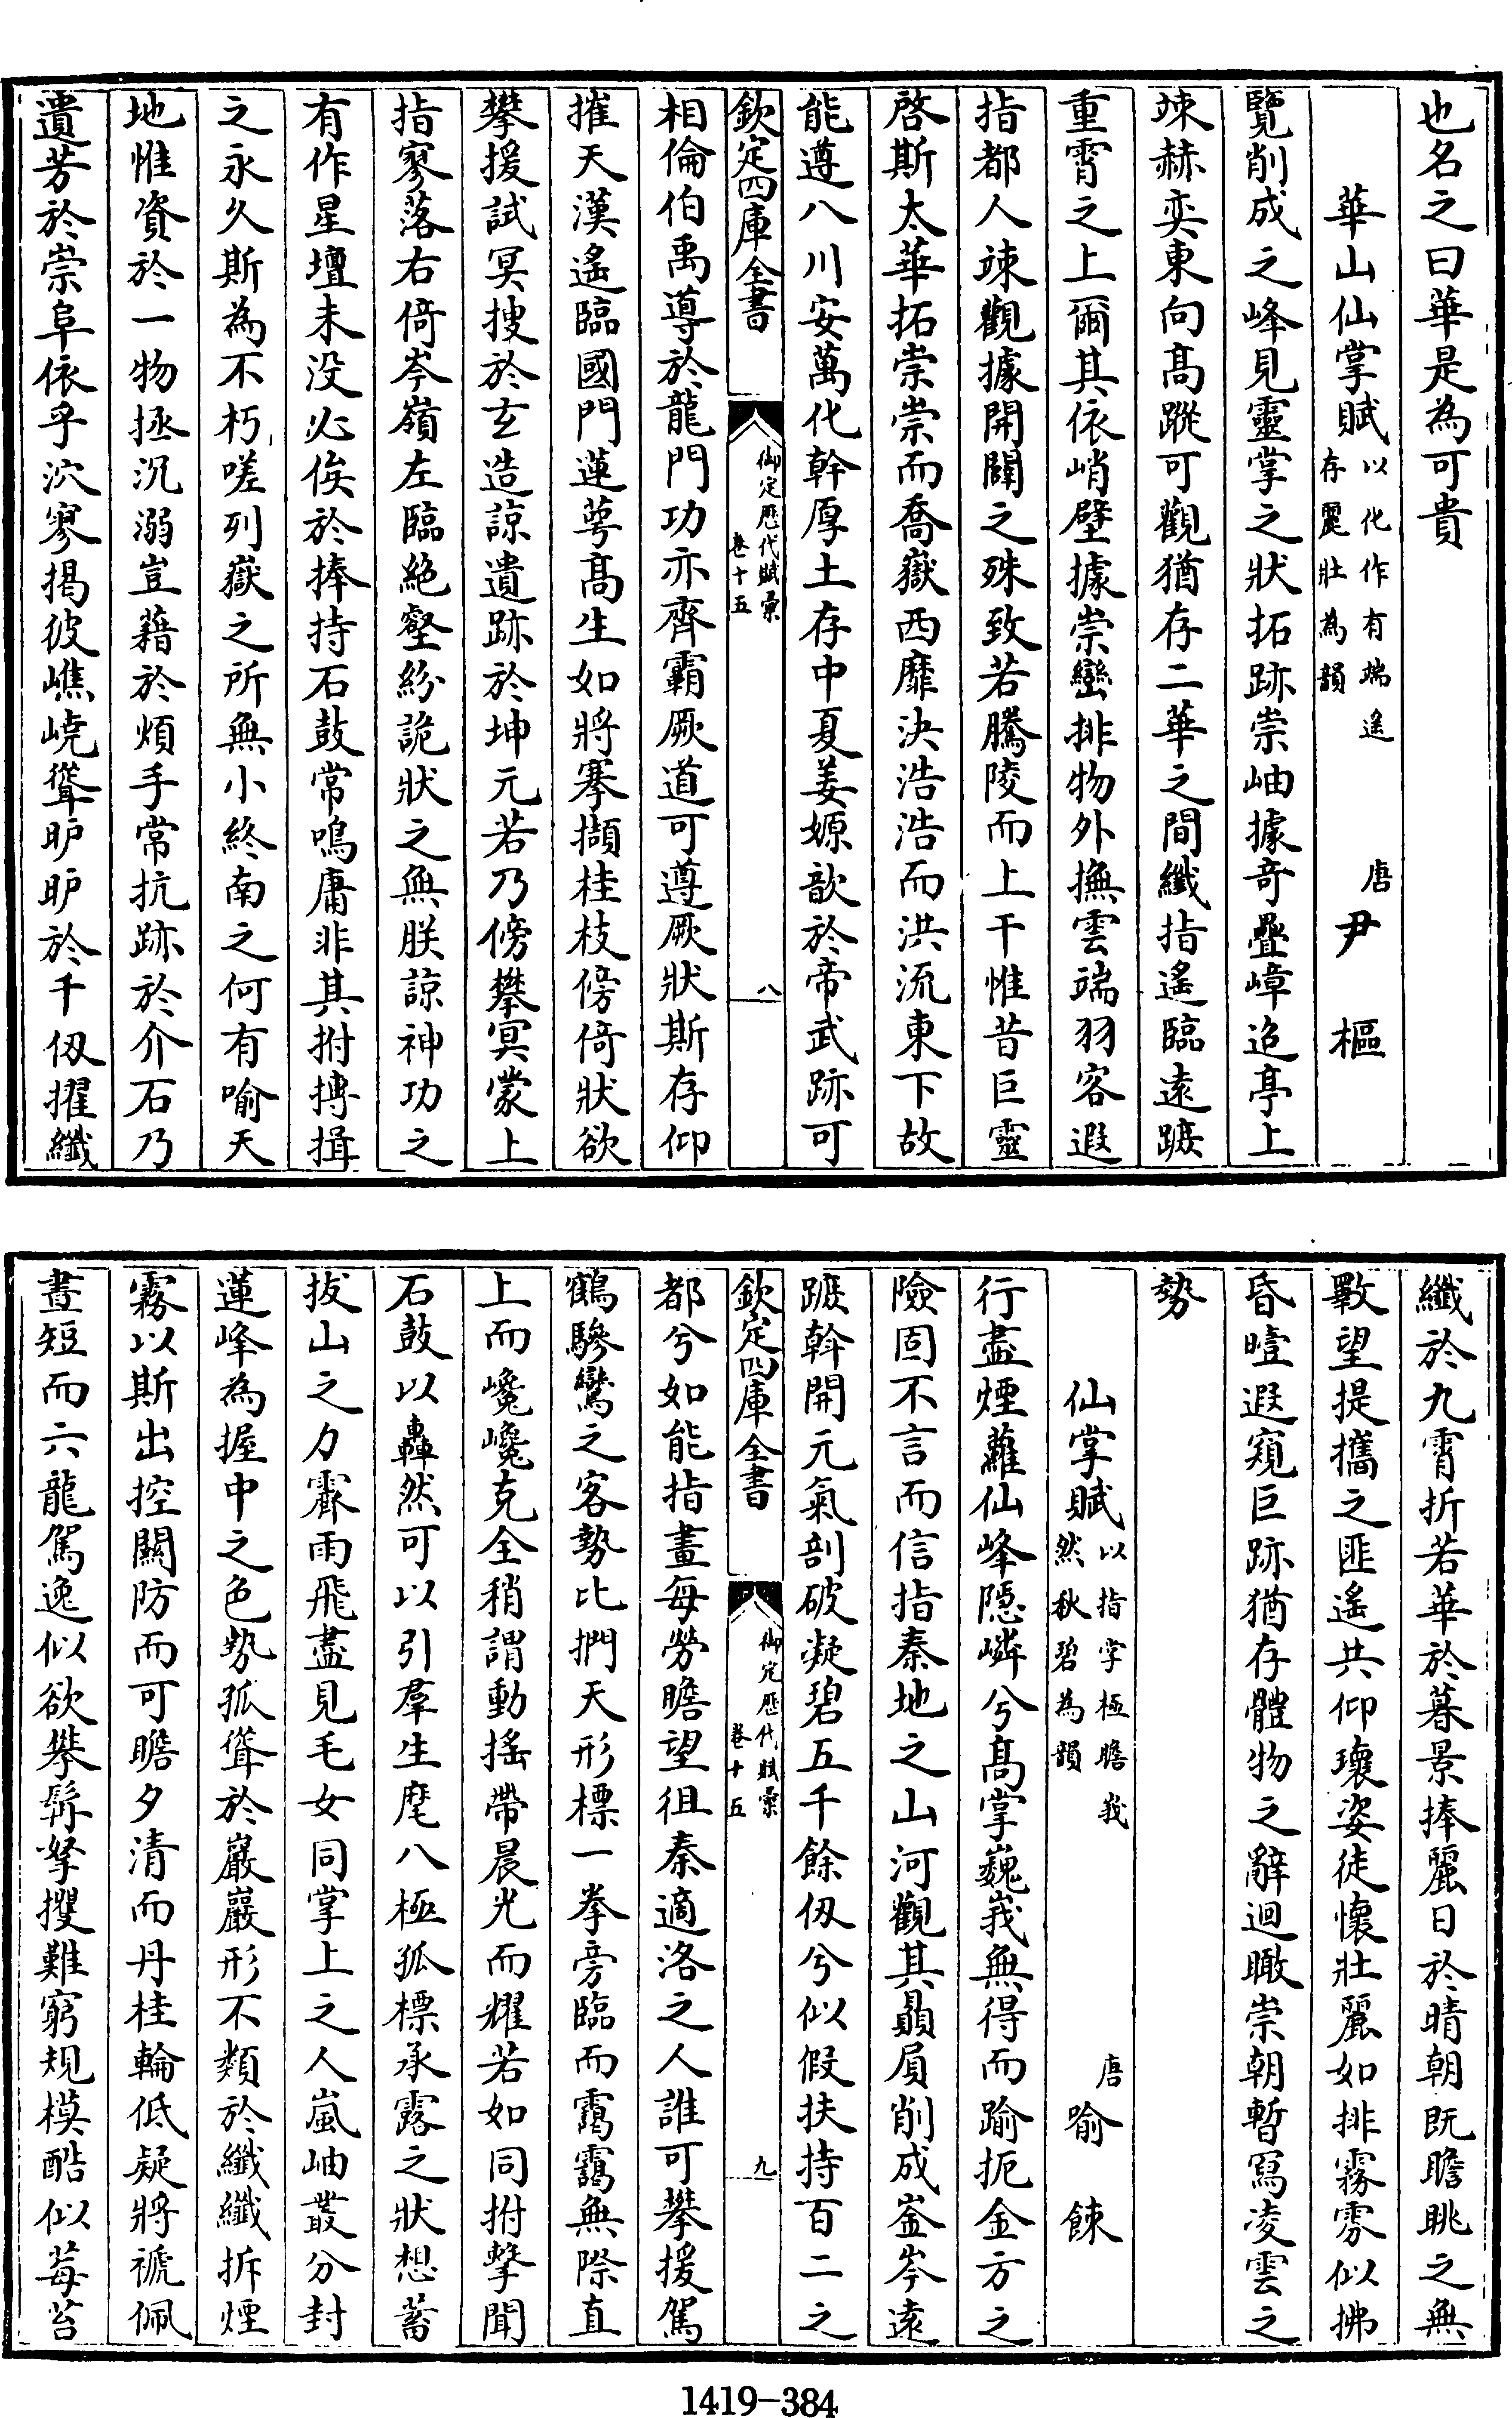 也名之曰華是為可貴
華山仙掌賦以化作有端遙存麗壯為韻 唐尹樞
覽削成之峰見靈掌之狀拓跡崇岫據奇疊嶂迢亭上
竦赫奕東向高蹤可觀猶存二華之間纖指遙臨遠蹠
重霄之上爾其依峭壁據崇巒排物外撫雲端羽客遐
指都人竦觀據開闢之殊致若騰陵而上干惟昔巨靈
啓斯太華拓崇崇而喬嶽西靡決浩浩而洪流東下故
能遵八川安萬化幹厚土存中夏姜嫄歆於帝武跡可
欽定四庫全書 御定歷代賦彙卷十五 八
相倫伯禹導於龍門功亦齊霸厥道可遵厥狀斯存仰
摧天漢遙臨國門蓮萼高生如將搴擷桂枝傍倚狀欲
攀援試冥搜於玄造諒遺跡於坤元若乃傍攀冥蒙上
指寥落右倚岑嶺左臨絶壑紛詭狀之無朕諒神功之
有作星壇未没必俟於捧持石鼓常鳴庸非其拊搏揖
之永久斯為不朽嗟列嶽之所無小終南之何有喻天
地惟資於一物拯沉溺豈藉於煩手常抗跡於介石乃
遺芳於崇阜依乎泬寥揭彼嶕嶢聳昈昈於千仭擢纖
纖於九霄折若華於暮景捧麗日於晴朝既瞻眺之無
斁望提攜之匪遙共仰瓌姿徒懷壯麗如排霧雰似拂
昏曀遐窺巨跡猶存體物之辭迴瞰崇朝暫冩凌雲之
勢
仙掌賦以指掌極瞻峩然秋碧為韻 唐喻餗
行盡煙蘿仙峰隱嶙兮高掌巍峩無得而踰扼金方之
險固不言而信指秦地之山河觀其贔屓削成崟岑遠
蹠斡開元氣剖破凝碧五千餘仭兮似假扶持百二之
欽定四庫全書 御定歷代賦彙卷十五 九
都兮如能指畫每勞瞻望徂秦適洛之人誰可攀援駕
鶴驂鸞之客勢比捫天形標一拳旁臨而靄靄無際直
上而巉巉克全稍謂動搖帶晨光而耀若如同拊擊聞
石鼓以轟然可以引羣生麾八極孤標承露之狀想蓄
拔山之力霽雨飛盡見毛女同掌上之人嵐岫叢分封
蓮峰為握中之色勢孤聳於巖巖形不類於纖纖拆煙
霧以斯出控關防而可瞻夕清而丹桂輪低疑將褫佩
晝短而六龍駕逸似欲攀髯拏攫難窮規模酷似莓苔
1419-384